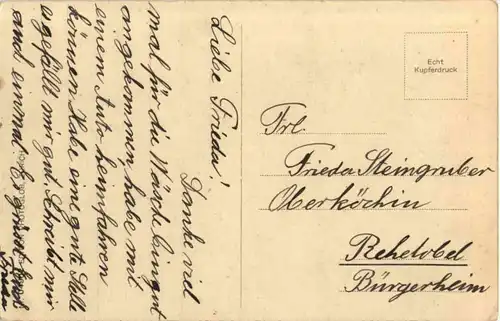 Liebe Frieda!
Danke viel
mal für die Wäsche bin gut
angekommen, habe mit
einem Auto heimfahren
können. Habe eine gute Stelle
es gefällt mir gut. Schreibt mir
auch einmal. Es grüsst Euch
Frieda
Echt
Kupferdruck
Frl.
Frieda Steingruber
Oberköchin
Rehetobel
Bürgerheim